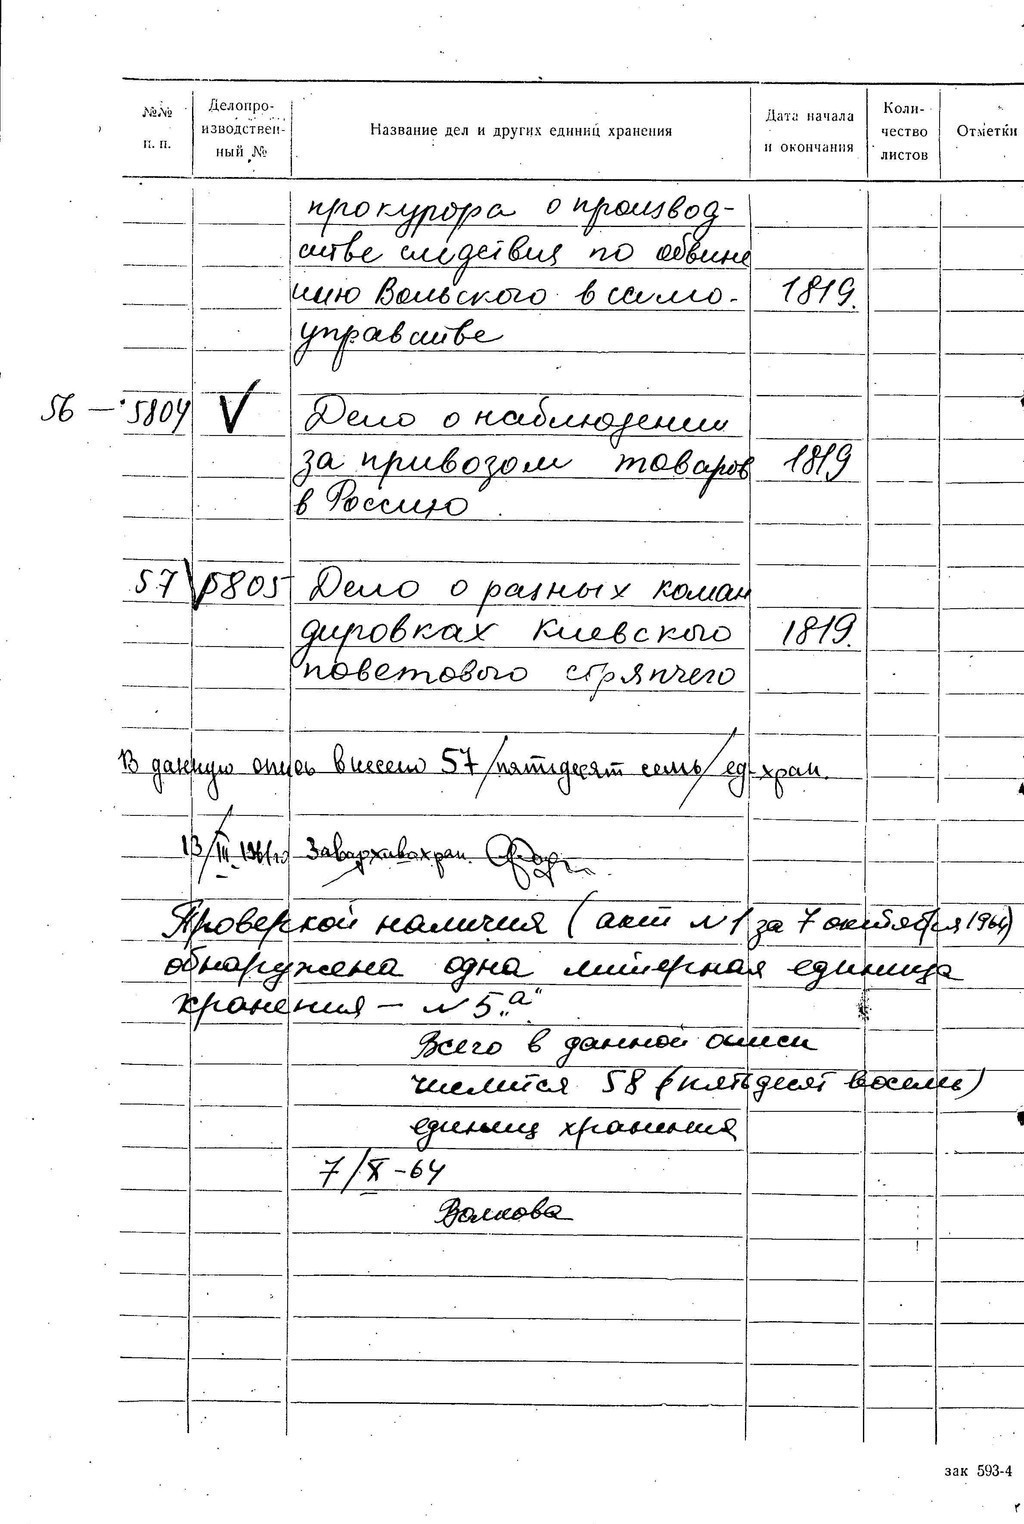 №№ п. п. Делопроизводственный № Название дел и других единиц хранения Дата начала и окончания Количество листов Отметки
прокурора о производ-
стве следствия по обвине
нию Вольского в само- 1819.
управстве
56 — 5804 V Дело о наблюдении
за привозом товаров 1819
в Россию
57 5805 Дело о разных коман
дировках Киевского 1819.
поветового стряпчего
В данную опись внесено 57 /пятьдесят семь/ ед. хран.
13/III 1961 го Завархивохран.
Проверкой наличия (акт № 1 за 7 октября 1964)
обнаружена одна литерная единица
хранения — № 5 „а"
Всего в данной описи
числится 58 (пятьдесят восемь)
единиц хранения
7/X-64
Волкова
зак 593-4